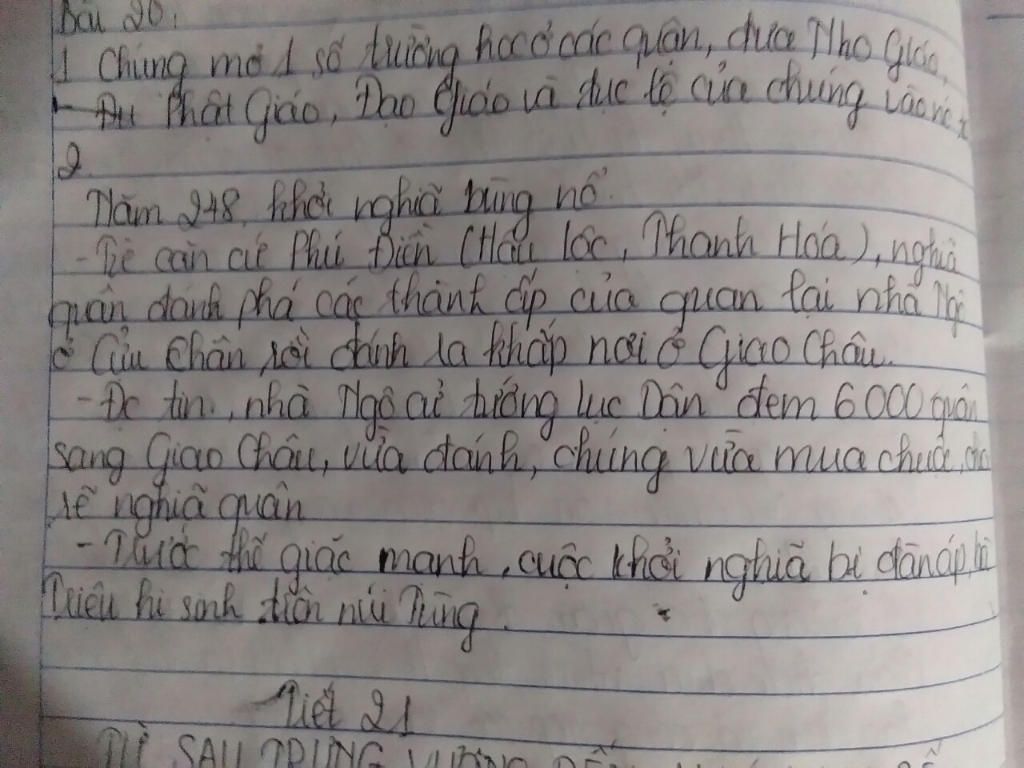 Bài 20:
1 Chúng mở 1 số trường học ở các quận, đưa Nho Giáo,
Phật Giáo, Đạo Giáo và tục lệ của chúng vào nc ta
2
Năm 248, khởi nghĩa bùng nổ.
- Từ căn cứ Phú Điền (Hậu Lộc, Thanh Hoá), nghĩa
quân đánh phá các thành ấp của quan lại nhà Ngô
ở Cửu Chân, rồi đánh ra khắp nơi ở Giao Châu.
- Đc tin, nhà Ngô cử tướng Lục Dận đem 6000 quân
sang Giao Châu, vừa đánh, chúng vừa mua chuộc, chia
rẽ nghĩa quân
- Trước thế giặc mạnh, cuộc khởi nghĩa bị đàn áp, bà
Triệu hi sinh trên núi Tùng.
Tiết 21
TỪ SAU TRƯNG VƯƠNG ĐẾN